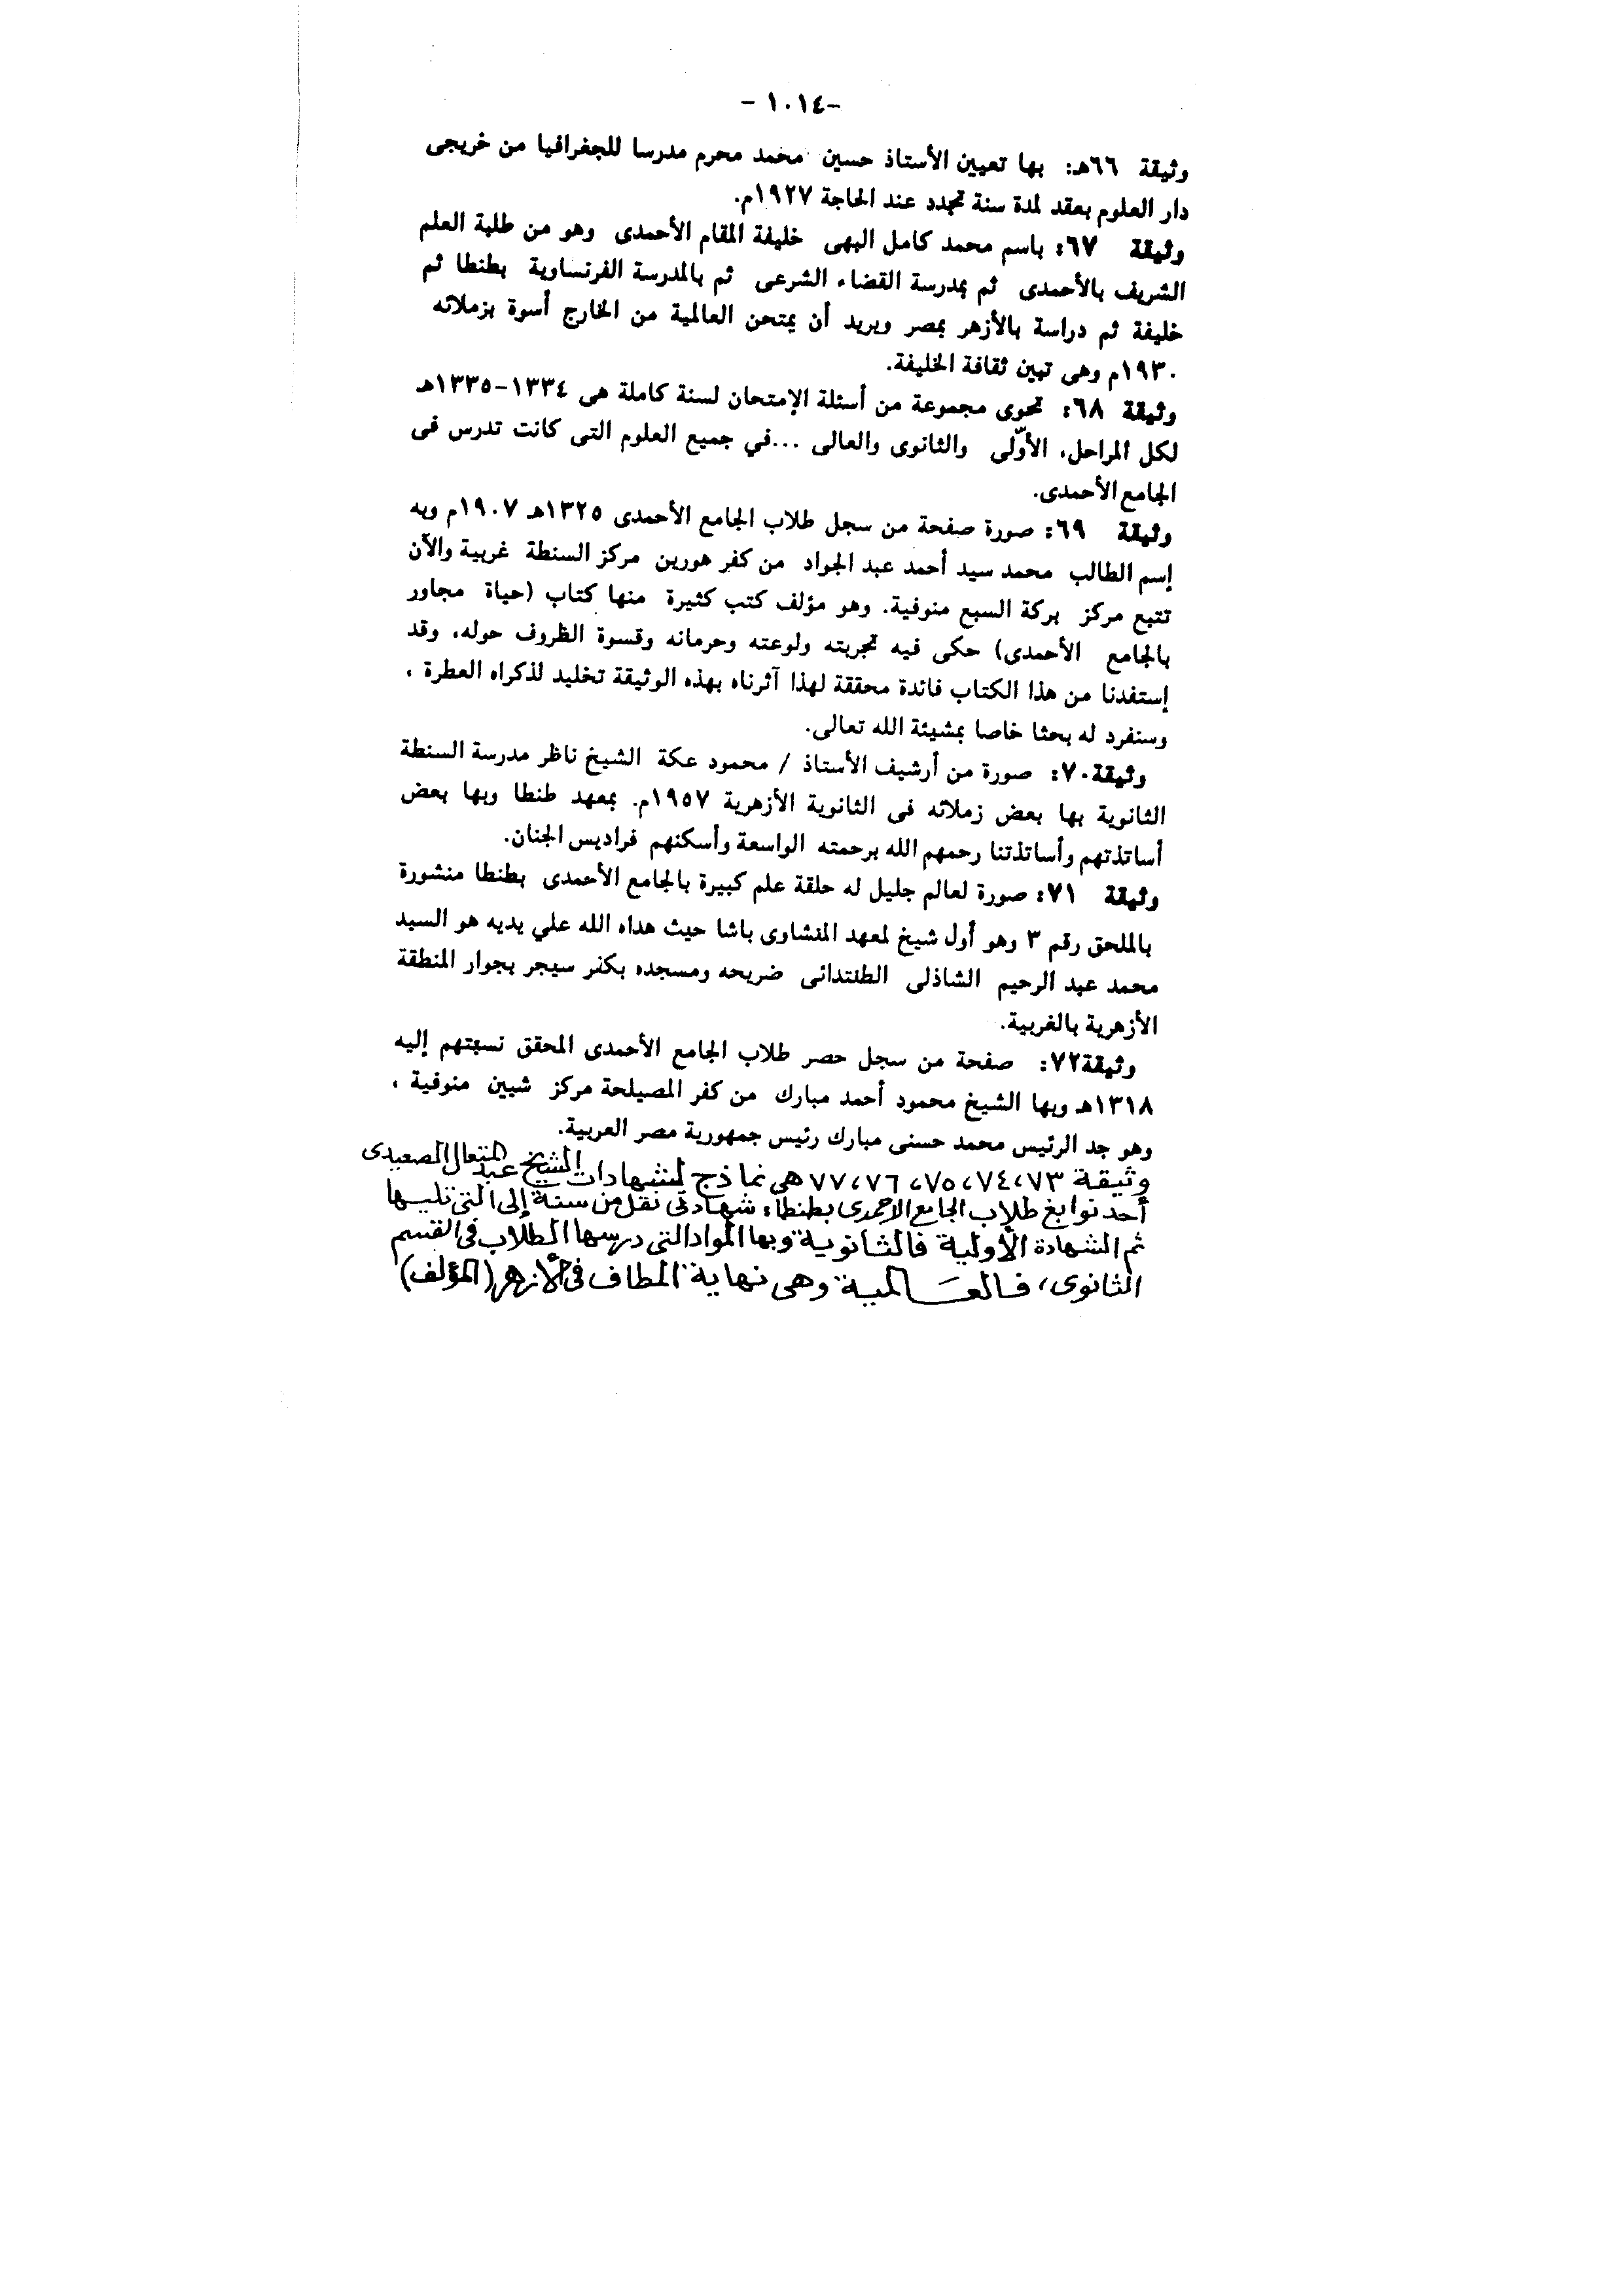 -١٠١٤ -
وثيقة ٦٦هـ: بها تعيين الأستاذ حسين محمد محرم مدرسا للجغرافيا من خريجى
دار العلوم بعقد لمدة سنة تجدد عند الحاجة ١٩٢٧م.
وثيقة ٦٧: باسم محمد كامل البهى خليفة المقام الأحمدى وهو من طلبة العلم
الشريف بالأحمدى ثم بمدرسة القضاء الشرعى ثم بالمدرسة الفرنساوية بطنطا ثم
خليفة ثم دراسة بالأزهر بمصر ويريد أن يمتحن العالمية من الخارج أسوة بزملائه
١٩٣٠م وهى تبين ثقافة الخليفة.
وثيقة ٦٨: تحوى مجموعة من أسئلة الإمتحان لسنة كاملة هى ١٣٣٤-١٣٣٥هـ
لكل المراحل، الأوّلى والثانوى والعالى ...في جميع العلوم التى كانت تدرس فى
الجامع الأحمدى.
وثيقة ٦٩: صورة صفحة من سجل طلاب الجامع الأحمدى ١٣٢٥هـ ١٩٠٧م وبه
إسم الطالب محمد سيد أحمد عبد الجواد من كفر هورين مركز السنطة غربية والآن
تتبع مركز بركة السبع منوفية. وهو مؤلف كتب كثيرة منها كتاب (حياة مجاور
بالجامع الأحمدى) حكى فيه تجربته ولوعته وحرمانه وقسوة الظروف حوله، وقد
إستفدنا من هذا الكتاب فائدة محققة لهذا آثرناه بهذه الوثيقة تخليد لذكراه العطرة ،
وسنفرد له بحثا خاصا بمشيئة الله تعالى.
وثيقة٧٠: صورة من أرشيف الأستاذ / محمود عكة الشيخ ناظر مدرسة السنطة
الثانوية بها بعض زملائه فى الثانوية الأزهرية ١٩٥٧م. بمعهد طنطا وبها بعض
أساتذتهم وأساتذتنا رحمهم الله برحمته الواسعة وأسكنهم فراديس الجنان.
وثيقة ٧١: صورة لعالم جليل له حلقة علم كبيرة بالجامع الأحمدى بطنطا منشورة
بالملحق رقم ٣ وهو أول شيخ لمعهد المنشاوى باشا حيث هداه الله علي يديه هو السيد
محمد عبد الرحيم الشاذلى الطنتدائى ضريحه ومسجده بكفر سيجر بجوار المنطقة
الأزهرية بالغربية.
وثيقة٧٢: صفحة من سجل حصر طلاب الجامع الأحمدى المحقق نسبتهم إليه
١٣١٨هـ وبها الشيخ محمود أحمد مبارك من كفر المصيلحة مركز شبين منوفية ،
وهو جد الرئيس محمد حسنى مبارك رئيس جمهورية مصر العربية.
وثيقة ٧٣، ٧٤، ٧٥، ٧٦، ٧٧ هى نماذج لشهادات الشيخ عبد المتعال الصعيدى
أحد نوابغ طلاب الجامع الأحمدى بطنطا: شهادتى نقل من سنة إلى التى تليها
ثم الشهادة الأولية فالثانوية وبها المواد التى درسها الطلاب فى القسم
الثانوى، فالعَالمية وهى نهاية المطاف فى الأزهر (المؤلف)